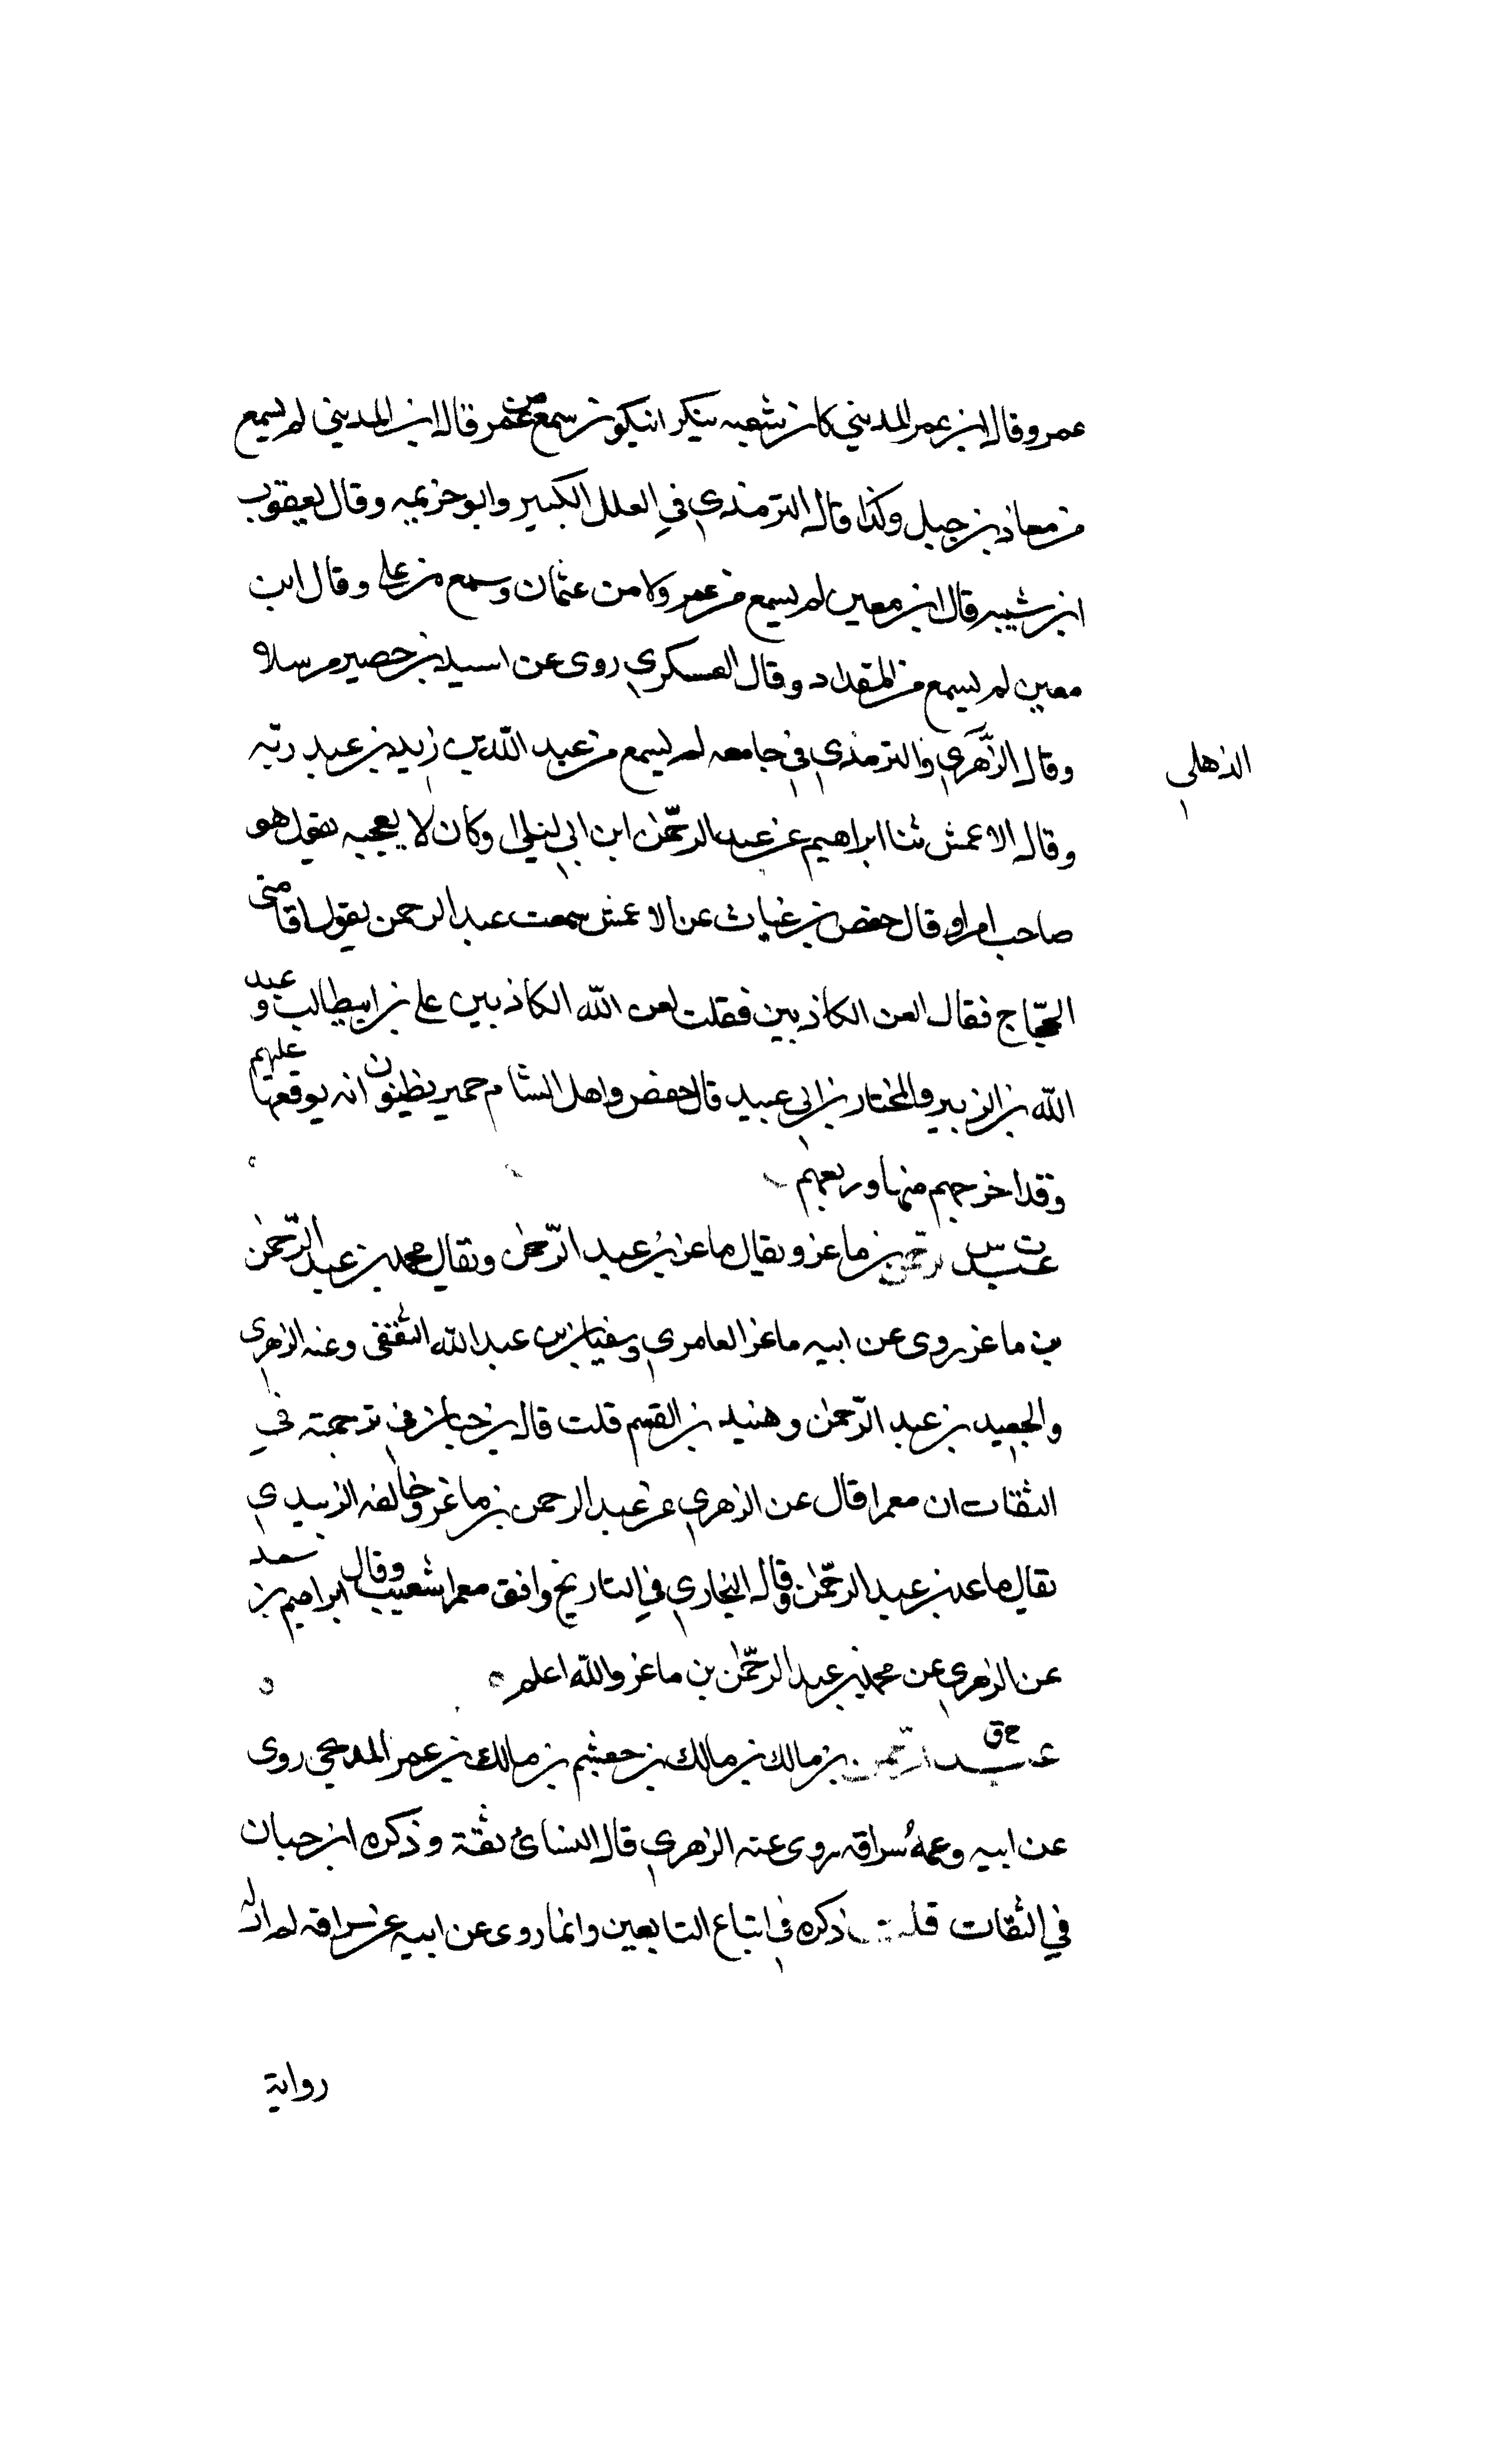 عمر وقال ابن عمر المديني كان شعبه ينكر ان يكون سمع من عمر قال ابن المديني لم يسمع
من معاذ بن جبل وكذا قاله الترمذي في العلل الكبير وابو خزيمه وقال يعقوب
ابن شيبه قال ابن معين لم يسمع من عمر ولا من عثمان وسمع من علي وقال ابن
معين لم يسمع من المقداد وقال العسكري روى عن اسيد بن حصير مرسلا
وقال الزهري والترمذي في جامعه لم يسمع من عبد الله بن زيد بن عبد ربه
الذهلي
وقال الاعمش ثنا ابراهيم عن عبد الرحمن ابن ابي ليلى وكان لا يعجبه يقول هو
صاحب امرا وقال حفص بن غياث عن الاعمش سمعت عبد الرحمن يقول اقامني
الحجاج فقال العن الكاذبين فقلت لعن الله الكاذبين علي بن ابيطالب وعبد
الله بن الزبير والمختار بن ابي عبيد قال حفص واهل الشام حمير يظنون انه يوقعها عليهم
وقد اخرجهم منها ورفعهم
ت س عبد الرحمن بن ماعز ويقال ماعز بن عبد الرحمن ويقال محمد بن عبد الرحمن
بن ماعز روى عن ابيه ماعز العامري وسفيان بن عبد الله الثقفى وعنه الزهرى
والجعيد بن عبد الرحمن وهنيد بن القسم قلت قال بن حبان في ترجمته في
الثقات ان معمرا قال عن الزهري عن عبد الرحمن بن ماعز وخالفه الزبيدي
يقال ماعز بن عبد الرحمن وقال البخاري في التاريخ وافق معمرا شعيب وقال ابراهيم بن سعد
عن الزهري عن محمد بن عبد الرحمن بن ماعز والله اعلم
خ ق عبد الرحمن بن مالك بن مالك بن جعشم بن مالك بن عمر المدلجي روى
عن ابيه وعمه سراقه روى عنه الزهري قال النسائ ثقة وذكره ابن حبان
في الثقات قلت ذكره في اتباع التابعين وانما روى عن ابيه عن سراقه لم ار له
رواية